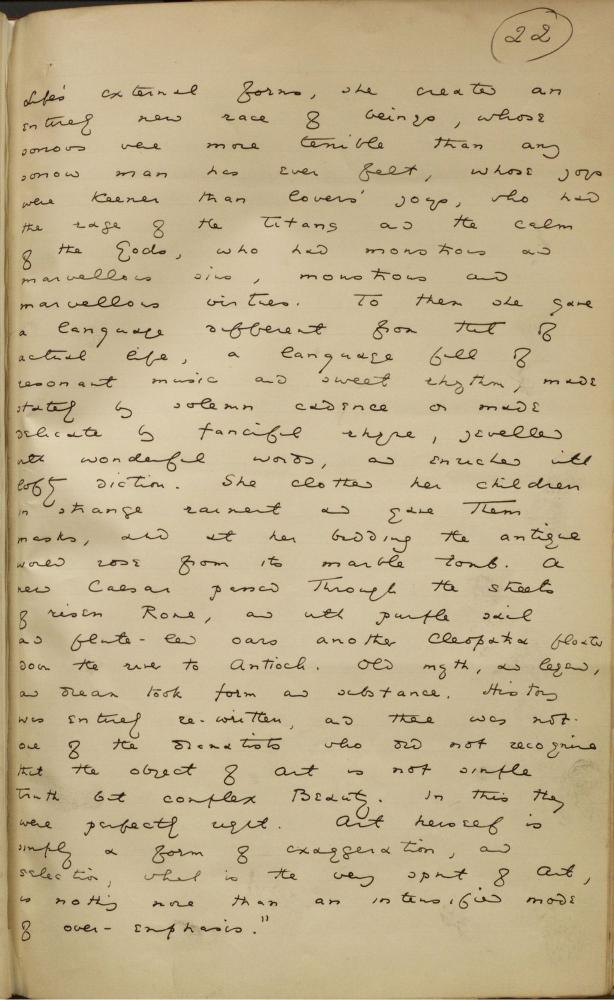 22
Life's external forms, she created an
entirely new race of beings, whose
sorrows were more terrible than any
sorrow man has ever felt, whose joys
were keener than lovers' joys, who had
the rage of the Titans and the calm
of the Gods, who had monstrous and
marvellous sins, monstrous and
marvellous virtues. To them she gave
a language different from that of
actual life, a language full of
resonant music and sweet rhythm, made
stately by solemn cadence or made
delicate by fanciful rhyme, jewelled
with wonderful words, and enriched with
lofty diction. She clothed her children
in strange raiment and gave them
masks, and at her bidding the antique
world rose from its marble tomb. A
new Caesar passed through the streets
of risen Rome, and with purple sail
and flute-led oars another Cleopatra floated
down the river to Antioch. Old myth, and legend,
and dream took form and substance. History
was entirely re-written, and there was not
one of the dramatists who did not recognise
that the object of art is not simple
truth but complex Beauty. In this they
were perfectly right. Art herself is
simply a form of exaggeration, and
selection, which is the very spirit of art,
is nothing more than an intensified mode
of over-emphasis."